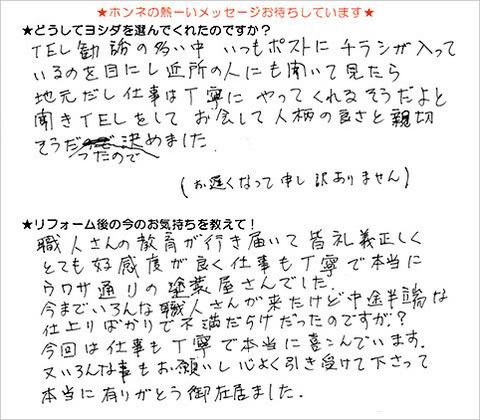 ★ホンネの熱ーいメッセージお待ちしています★
★どうしてヨシダを選んでくれたのですか?
TEL勧誘の多い中 いつもポストに チラシが入って
いるのを目にし近所の人にも聞いて見たら
地元だし仕事は丁寧に やってくれるそうだよと
聞きTELをして お会して人柄の良さと親切
そうだ 決めました
ったので
(お遅くなって申し訳ありません)
★リフォーム後の今のお気持ちを教えて!
職人さんの教育が行き届いて皆礼義正しく
とても好感度が良く仕事も丁寧で本当に
ウワサ通りの塗装屋さんでした.
今までいろんな職人さんが来たけど中途半端な
仕上りばかりで不満だらけだったのですが.?
今回は仕事も丁寧で本当に喜こんでいます.
又いろんな事もお願いし心よく引き受けて下さって
本当に有りがとう御在居ました.